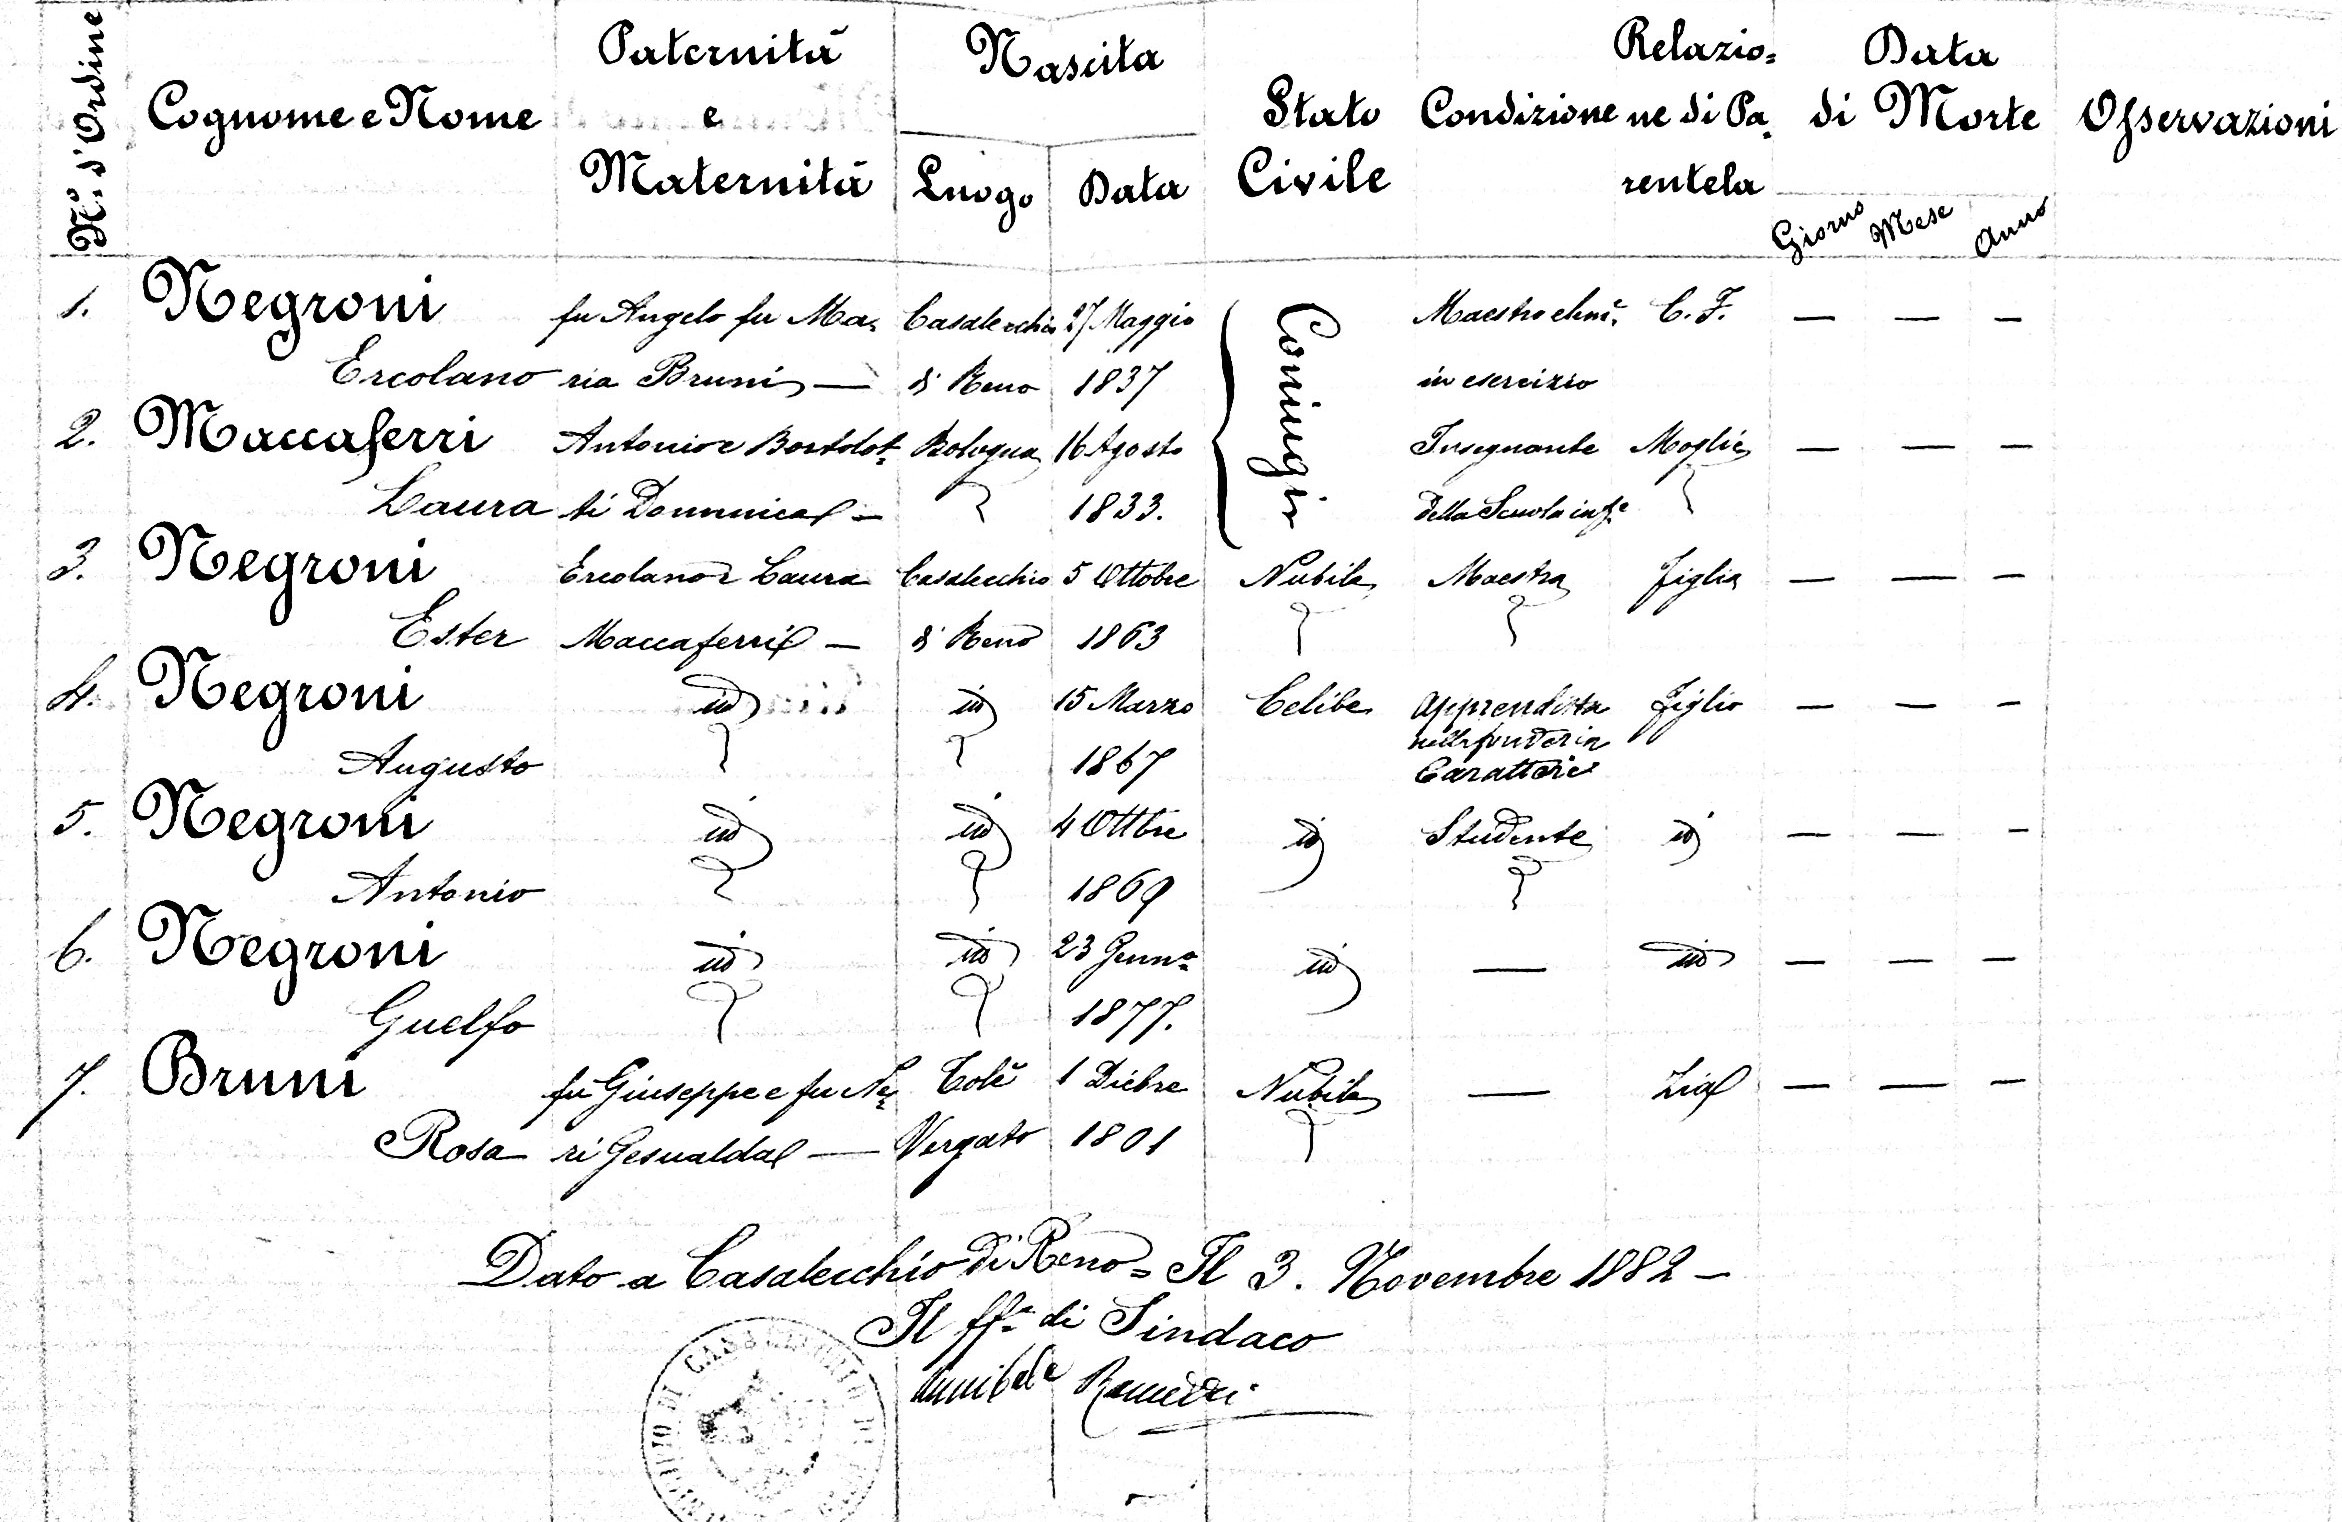 N.° d'Ordine
Cognome e Nome
Paternità
e
Maternità
Nascita
Luogo
Data
Stato
Civile
Condizione
Relazio=
ne di Pa=
rentela
Data
di Morte
Giorno
Mese
Anno
Osservazioni
1. Negroni fu Angelo fu Ma= Casalecchio 27 Maggio Coniugi Maestro elem. C. F. — — —
Ercolano ria Bruni — di Reno 1837 in esercizio
2. Maccaferri Antonio e Bortolot= Bologna 16 Agosto Insegnante Moglie — — —
Laura ti Domenica — 1833. della Scuola inf.e
3. Negroni Ercolano e Laura Casalecchio 5 Ottobre Nubile Maestra figlia — — —
Ester Maccaferri — di Reno 1863
4. Negroni id id 15 Marzo Celibe Apprendista figlio — — —
nella fonderia
Augusto 1867 Caratteri
5. Negroni id id 4 Ottbre id Studente id — — —
Antonio 1869
6. Negroni id id 23 Genno id — id — — —
Guelfo 1877.
7. Bruni fu Giuseppe e fu Ne= Tolè 1 Diebre Nubile — Zia — — —
Rosa ri Gesualda — Vergato 1801
Dato a Casalecchio di Reno = Il 3. Novembre 1882 —
Il ff.e di Sindaco
Annibale